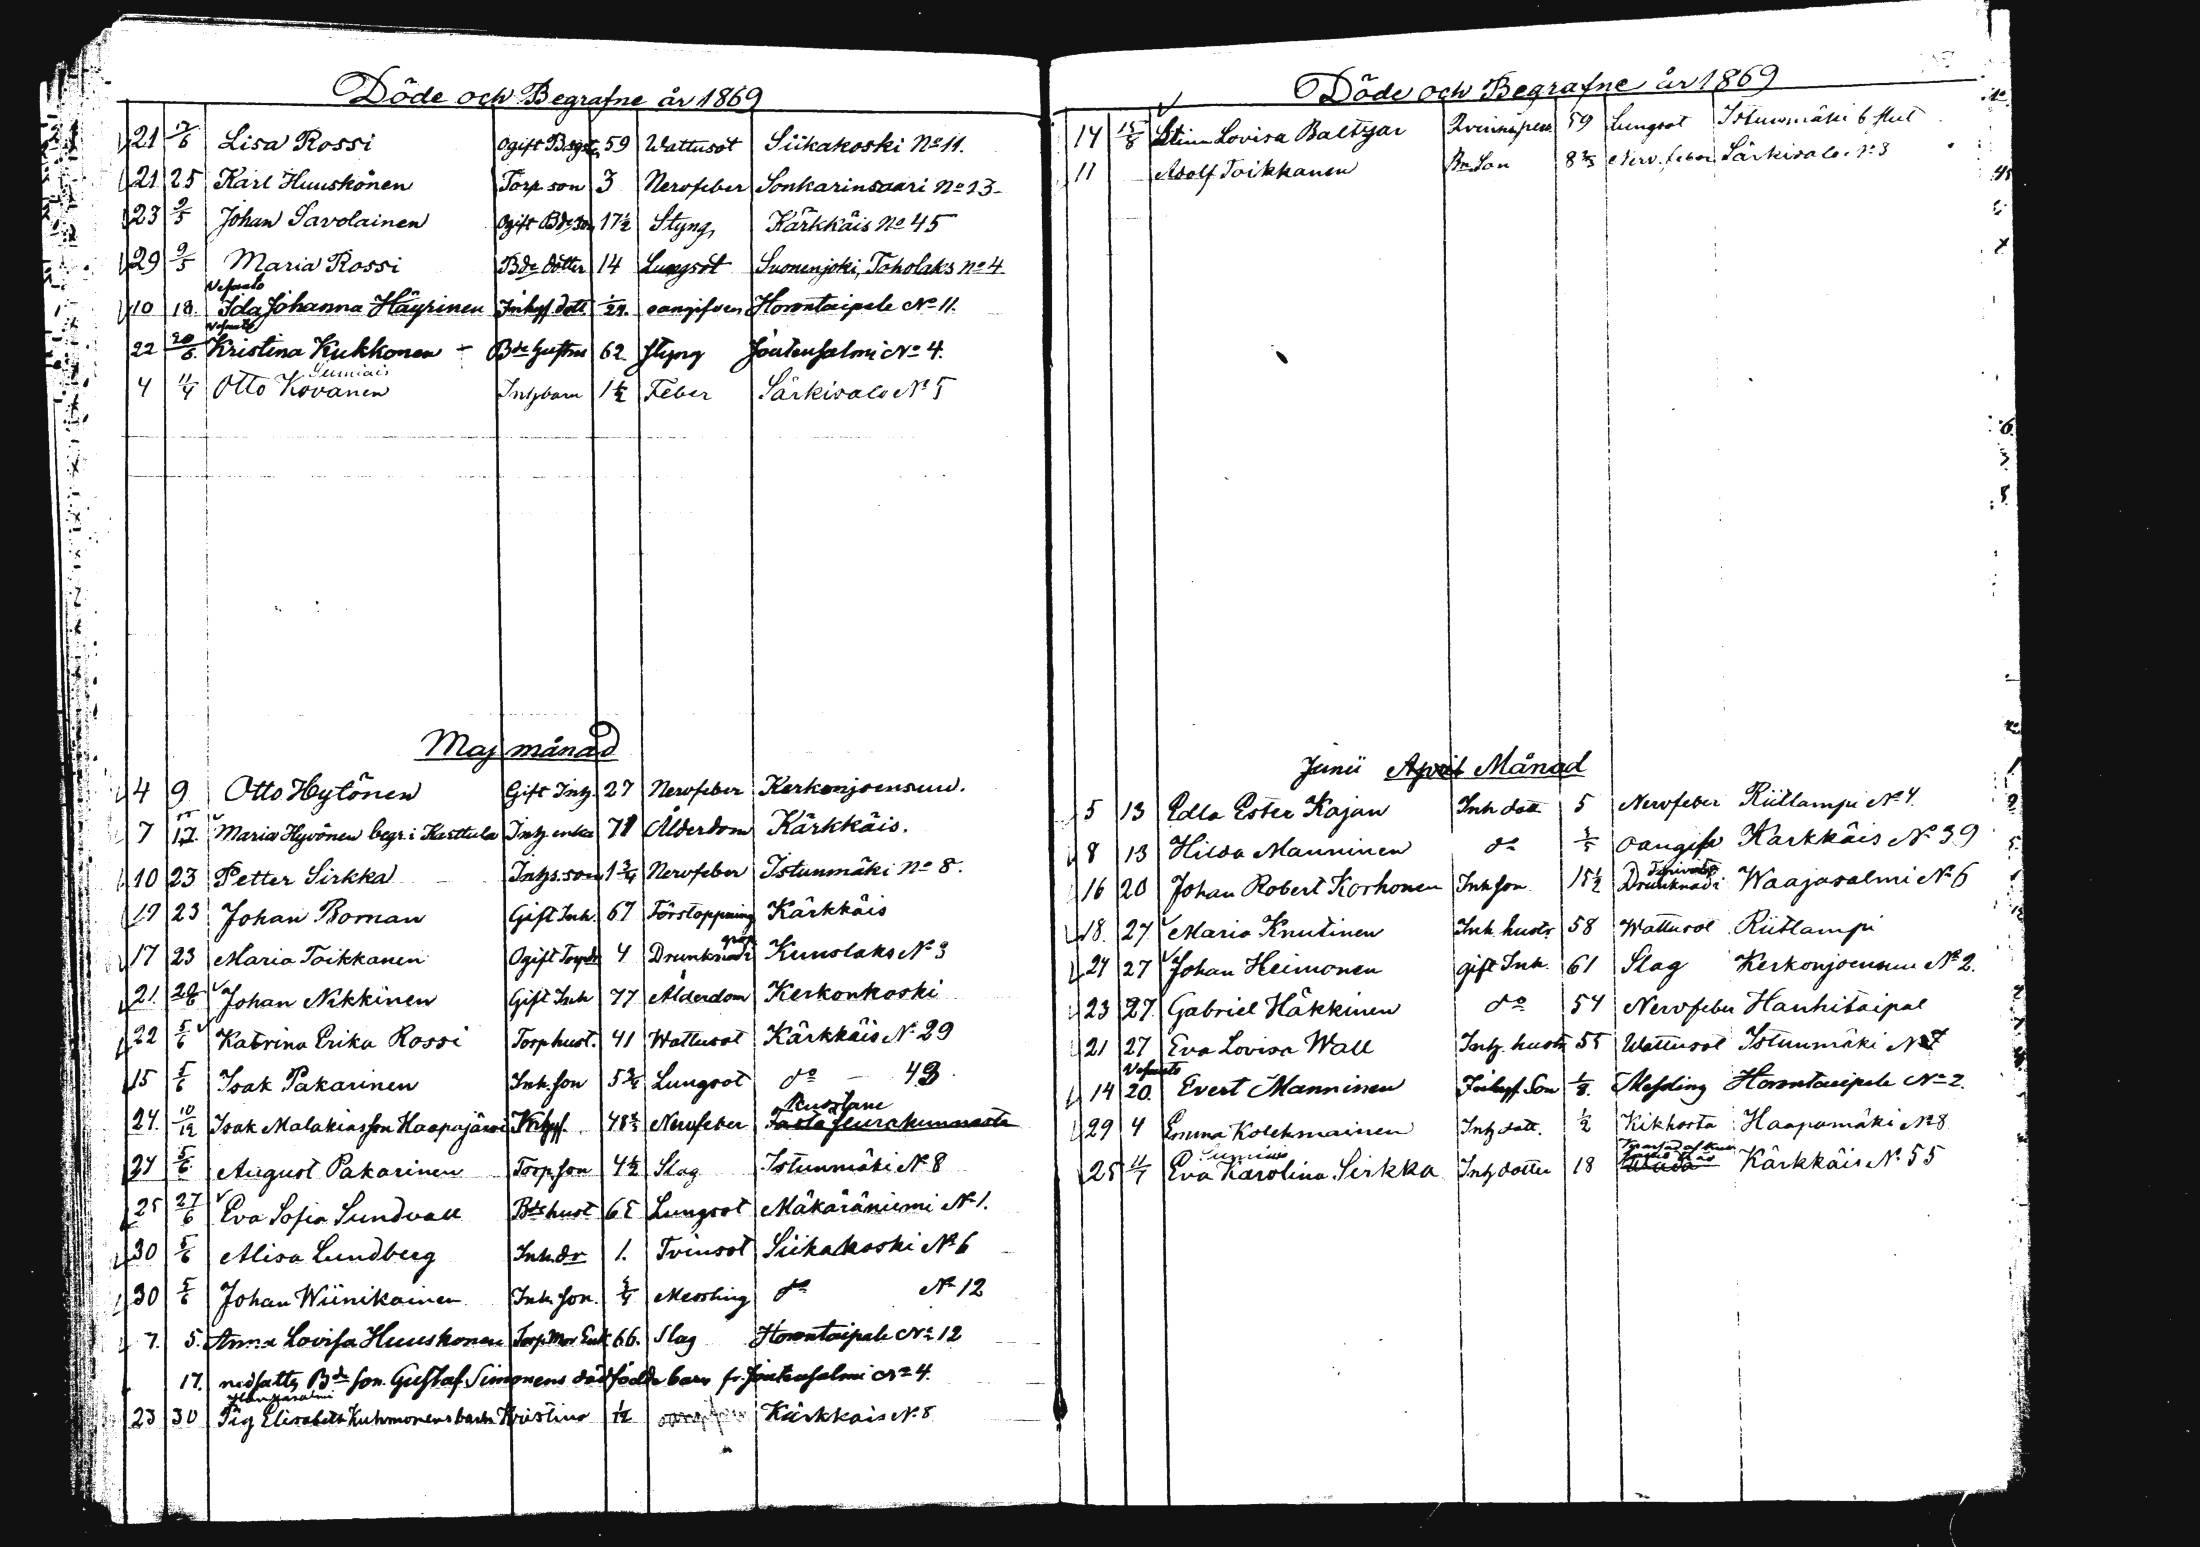 Döde och Begrafne år 1869
21 17/6 Lisa Rossi Ogift 59 Wattusot Siikakoski No 11.
21 25 Karl Huuskonen Torp. son 3 Nervfeber Sonkarinsaari No 23
23 9/5 Johan Savolainen Ogift Bde son 17 1/2 Styng Kärkkäis No 45
29 9/5 Maria Rossi Bde dotter 14 Lungsot Suonenjoki, Toholaks No 4
Vesanto
10 18. Ida Johanna Häyrinen Inhys. dott. 1/24. oangifven Horontaipale No 11.
Vesanto
22 20/6 Kristina Kukkonen Bde 62 styng Joutensalmi No 4.
Sumiais
4 11/4 Otto Kovanen Inhybarn 1 1/2 Feber Särkisalo No 5
Maj månad
4 9 Otto Hytönen Gift Inhy. 27 Nervfeber Kerkonjoensuu.
7 17 Maria Hyvönen begr. i Karttula Inhy enka 78 Ålderdom Kärkkäis.
10 23 Petter Sirkka Inhys. son 1 3/4 Nervfeber Istunmäki No 8.
19 23 Johan Boman Gift Inh. 67 Förstoppning Kärkkäis
17 23 Maria Toikkanen Ogift 4 Drunknade Kuuslaks No 3
21. 20/6 Johan Nikkinen Gift Inh 77 Ålderdom Kerkonkoski
22 5/6 Katrina Erika Rossi Torp hust. 41 Wattusot Kärkkäis No 29
15 5/6 Isak Pakarinen Inh. son 5 3/4 Lungsot do 43
24. 10/12 Isak Malakiasson Haapajärvi Inhys. 48 2/3 Nervfeber
24 5/6 August Pakarinen Torp. son 4 1/2 Slag Istunmäki No 8
25 27/6 Eva Sofia Sundvall Bde hust 65 Lungsot Mäkäräniemi No 1.
30 5/6 Alisa Lundberg Inh. dr 1. Tvinsot Siikakoski No 6
30 5/6 Johan Wiinikainen Inh. son. 3/4 Messling do No 12
7. 5. Anna Lovisa Huuskonen Torp. Mor Enk 66. Slag Horontaipale No 12
17. nedsattes Bde son Gustaf Simonens dödfödda barn fr. Joutensalmi No 4.
Hankasalmi
23 30 Pig Elisabeth Kuhmonens barn Kristina 1/12 oangifven Kärkkäis No 8
Döde och Begrafne år 1869
14 15/8 Stina Lovisa Baltzar 59 Lungsot Istunmäki 6
11 Adolf Toikkanen Bn Son 8 2/3 Nerv. feber Särkisalo No 3
Junii April Månad
5 13 Edla Ester Kajan Inh dott 5 Nervfeber Riitlampi No 4.
8 13 Hilda Manninen do oangifv Kärkkäis No 39
16 20 Johan Robert Korhonen Inh son 15 1/2 Drunknade i Waajasalmi No 6
18. 27 Maria Knutinen Inh. hustr 58 Wattusot Riitlampi
24 27 Johan Heimonen gift Inh. 61 Slag Kerkonjoensuu No 2.
23 27. Gabriel Häkkinen do 54 Nervfeber Hanhitaipal
21 27 Eva Lovisa Wall Inhy. hustr 55 Wattusot Istunmäki No 7
Vesanto
14 20. Evert Manninen Inhys. Son 1/8. Messling Horontaipale No 2.
29 4 Emma Kolehmainen Inhy dott. 1/2 Kikhosta Haapamäki No 8
Sumiais
25 11/7 Eva Karolina Sirkka Inhy dotter 18 Kärkkäis No 55